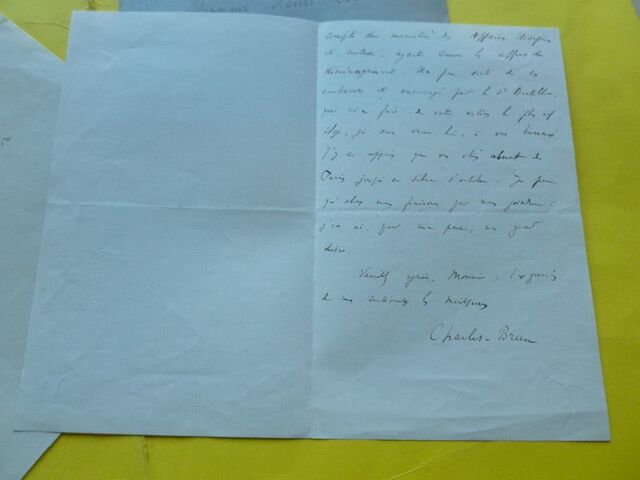 compte du ministère des Affaires étrangères
et, même, ayant connu les affres du
déménagement. Un peu sorti de ces
embarras et encouragé par le Dr Bertillon,
qui m'a fait de votre action le plus vif
éloge, je suis venu hier, à vos bureaux.
J'y ai appris que vous étiez absent de
Paris jusqu'au début d'octobre. Je pense
qu'alors nous finirons par nous joindre :
j'en ai, pour ma part, un grand
désir.
Veuillez agréer, Monsieur, l'expression
de mes sentiments les meilleurs
Charles-Brun